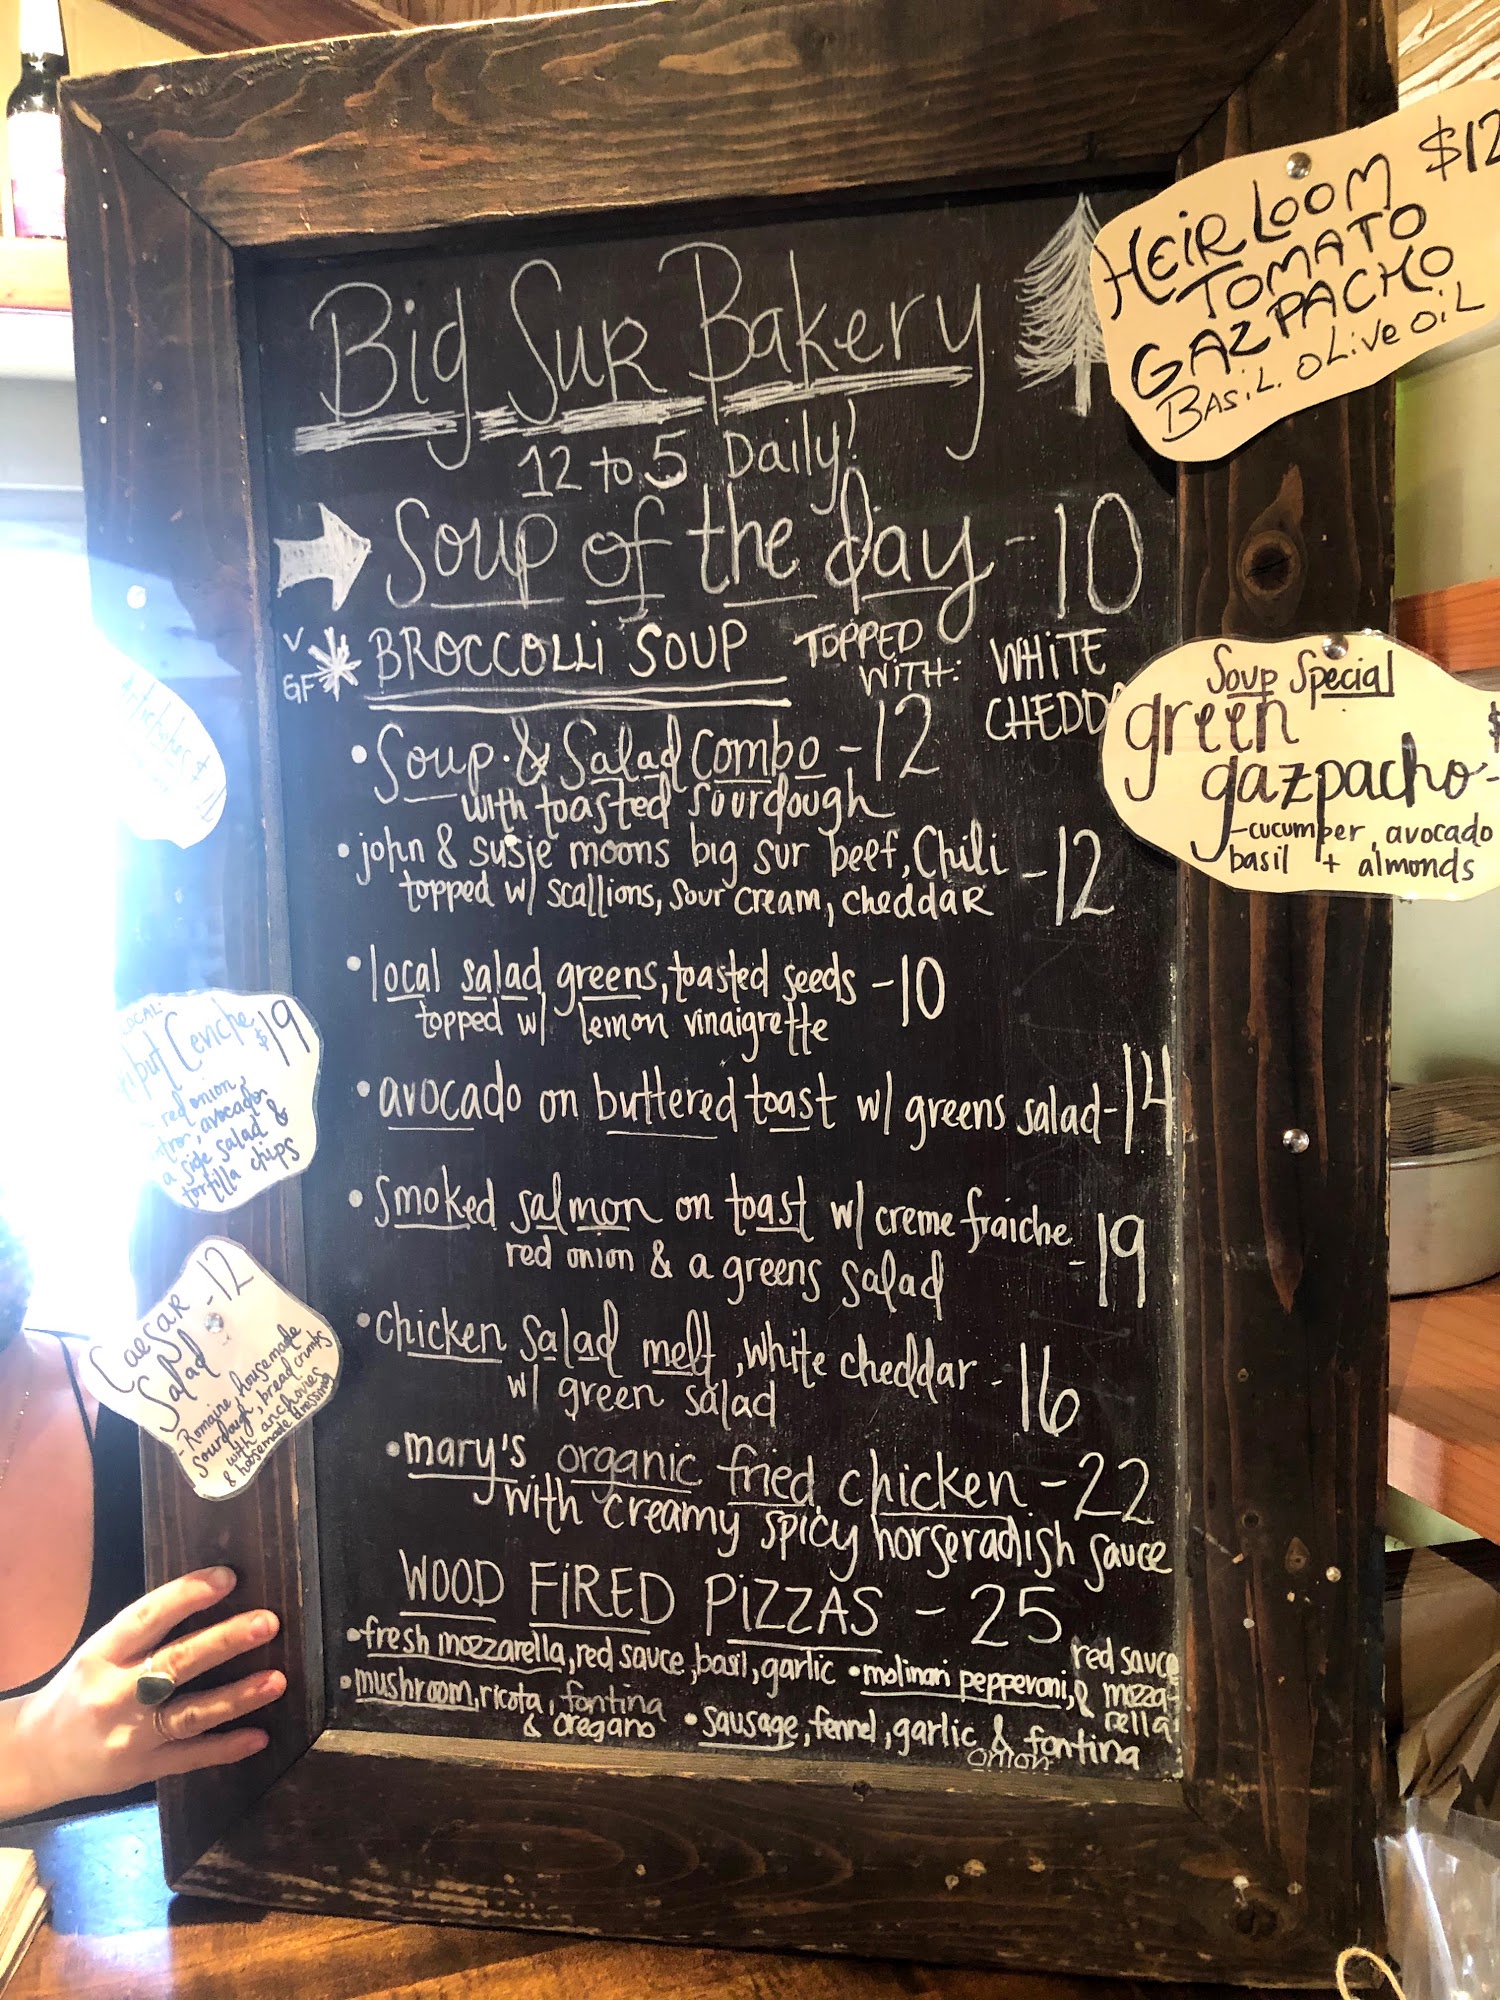 Big Sur Bakery
12 to 5 Daily!
Soup of the day - 10
V
GF
BROCCOLLI SOUP
TOPPED
WITH:
WHITE
CHEDD
• Soup & Salad Combo - 12
with toasted sourdough
• john & susie moons big sur beef, Chili - 12
topped w/ scallions, sour cream, cheddar
• local salad greens, toasted seeds - 10
topped w/ lemon vinaigrette
• avocado on buttered toast w/ greens salad - 14
• smoked salmon on toast w/ creme fraiche
red onion & a greens salad - 19
• chicken salad melt, white cheddar - 16
w/ green salad
• mary's organic fried chicken - 22
with creamy spicy horseradish sauce
WOOD FIRED PIZZAS - 25
• fresh mozzarella, red sauce, basil, garlic
• molinari pepperoni, red sauce
& mozza-
rella
• mushroom, ricota, fontina
& oregano
• sausage, fennel, garlic & fontina
onion
HEIRLOOM $12
TOMATO
GAZPACHO
BASIL. OLIVE OIL
Soup Special
green $
gazpacho -
- cucumber, avocado
basil + almonds
LOCAL:
Ceviche $19
- red onion,
avocado
a side salad &
tortilla chips
Caesar - 12
Salad
- Romaine, housemade
sourdough, bread crumbs
& with anchovies
housemade dressing